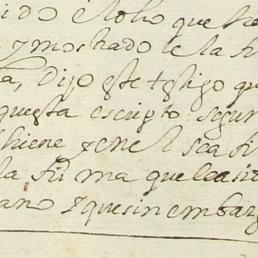 ido Y otro que
y mostrado de la fi
a, Dijo este testigo qu
questa escripto segun
thiene yen el sea fi
la firma que lea sido
ano y que sin embarg